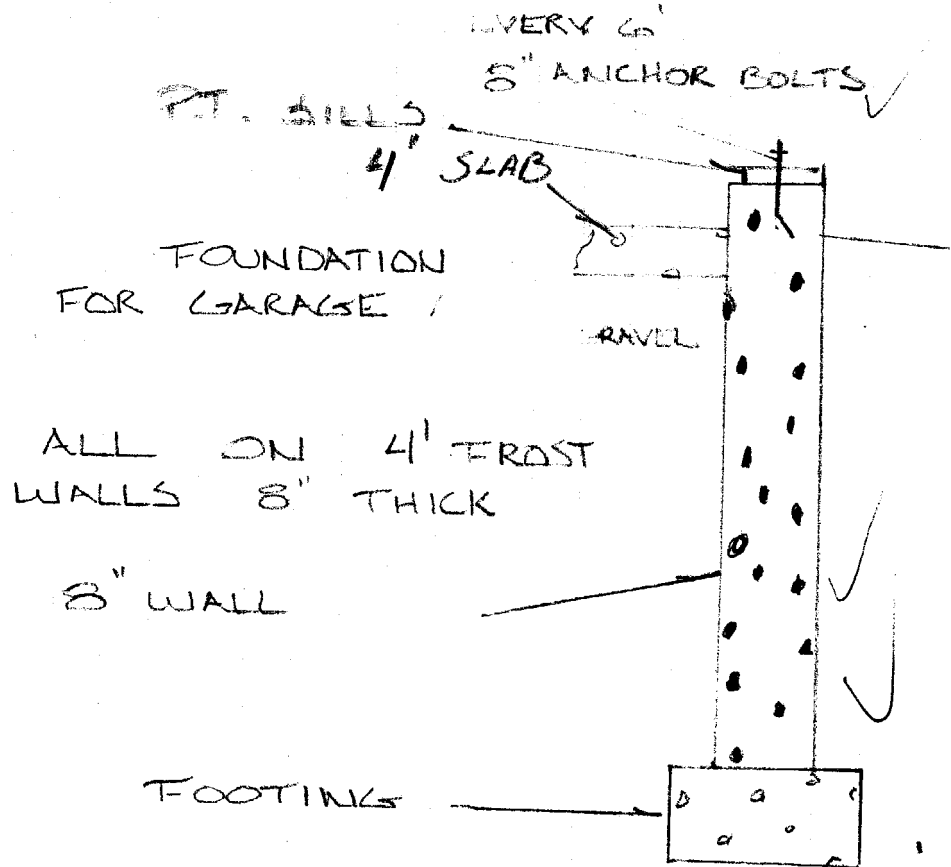 EVERY 6'
8" ANCHOR BOLTS
P.T. SILLS
4" SLAB
FOUNDATION
FOR GARAGE
GRAVEL
ALL ON 4' FROST
WALLS 8" THICK
8" WALL
FOOTING